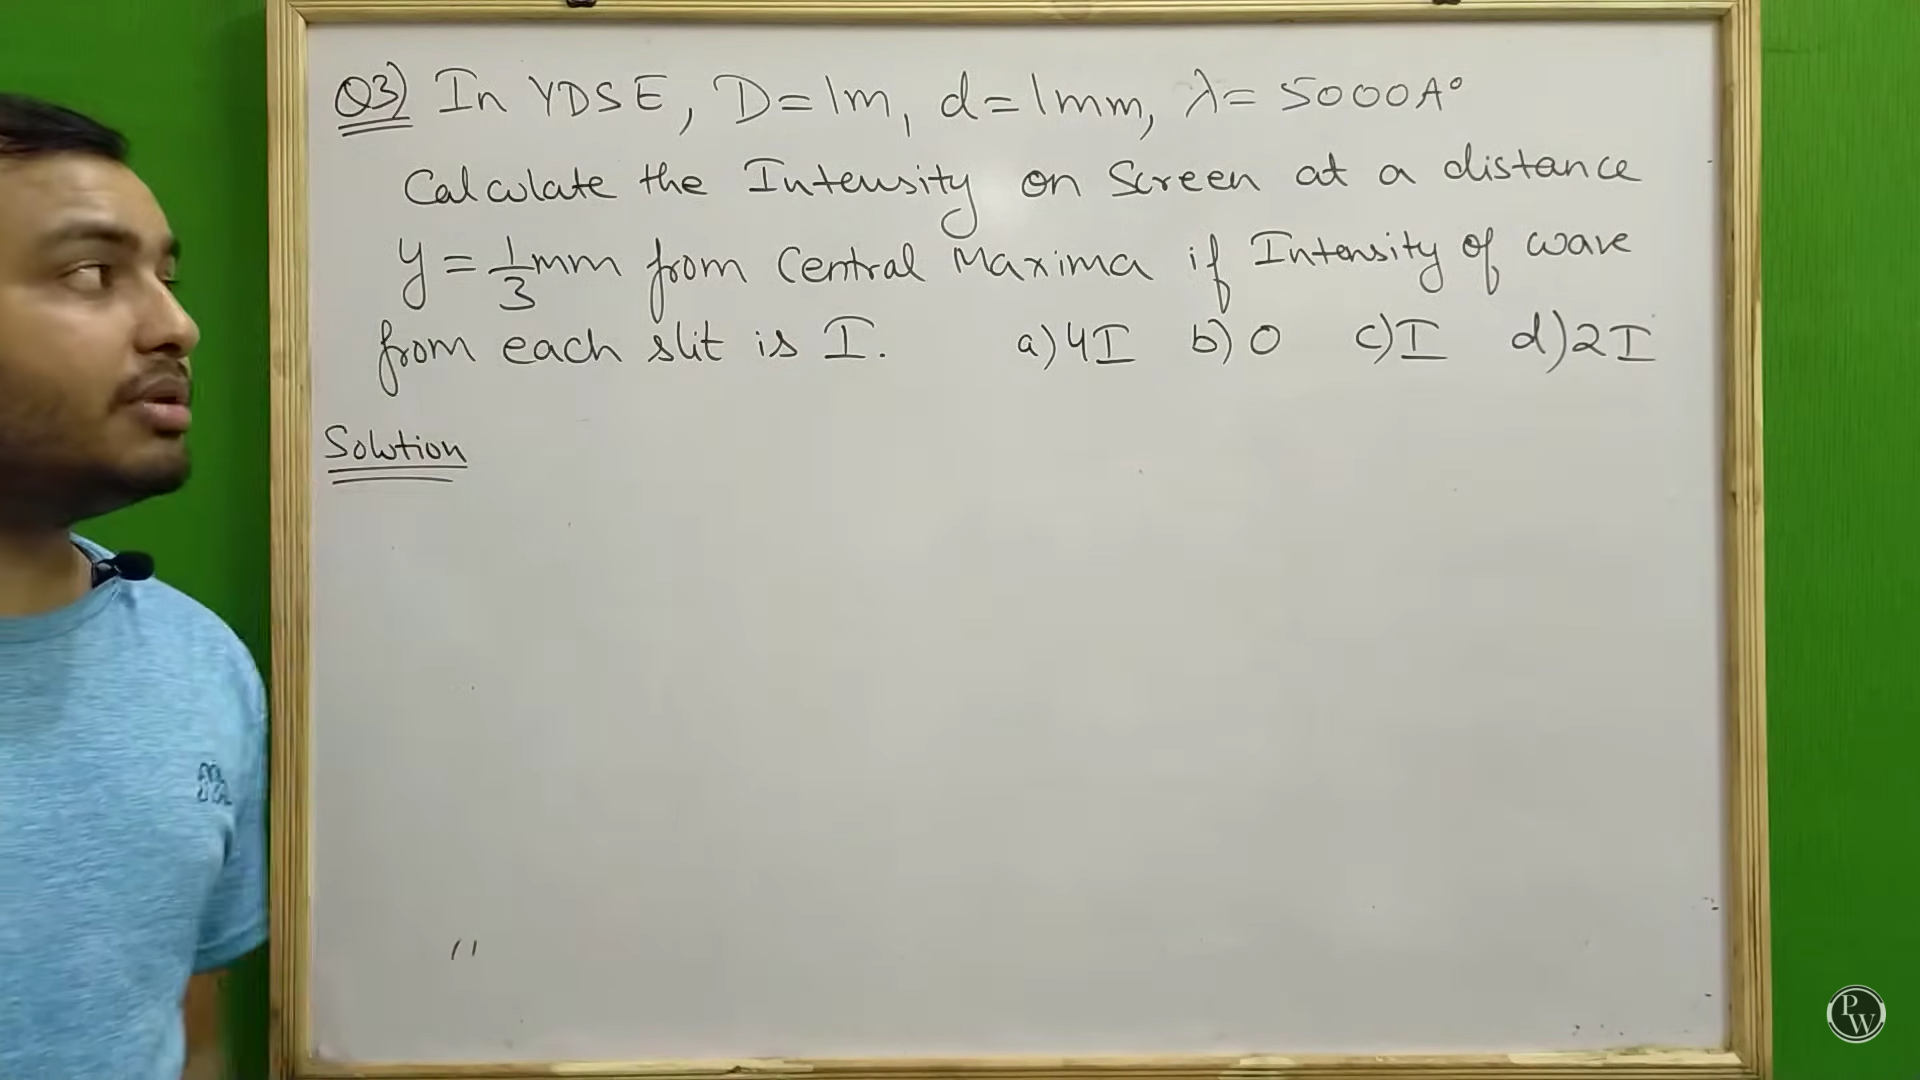 Q3) In YDSE, D=1m, d=1mm, λ= 5000A°
Calculate the Intensity on Screen at a distance
y = 1/3 mm from Central Maxima if Intensity of wave
from each slit is I. a) 4I b) 0 c) I d) 2I
Solution
PW